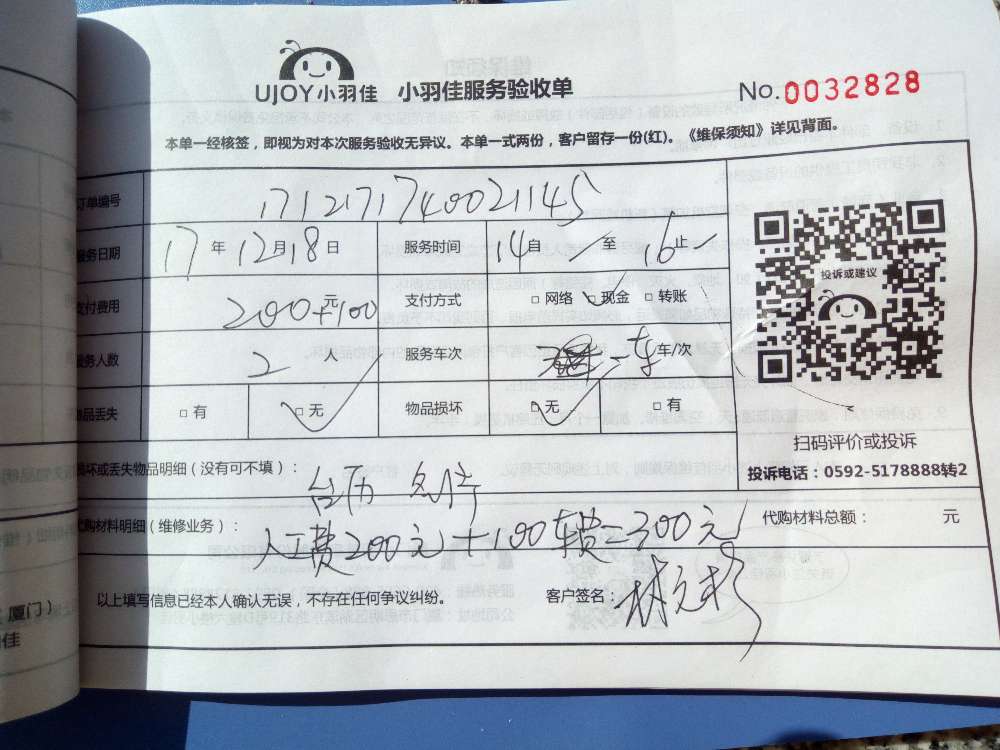 UJOY小羽佳 小羽佳服务验收单 No.0032828
本单一经核签，即视为对本次服务验收无异议。本单一式两份，客户留存一份(红)。《维保须知》详见背面。
订单编号 1712171740021145
服务日期 17年12月18日 服务时间 14自 至 16止
支付费用 200元+100 支付方式 □网络 □现金 □转账
服务人数 2人 服务车次 一车 车/次
物品丢失 □有 □无 物品损坏 □无 □有
投诉或建议
扫码评价或投诉
投诉电话：0592-5178888转2
损坏或丢失物品明细（没有可不填）：
代购材料明细（维修业务）： 人工费200元+100车费=300元 代购材料总额： 元
以上填写信息已经本人确认无误，不存在任何争议纠纷。 客户签名：
厦门）
佳